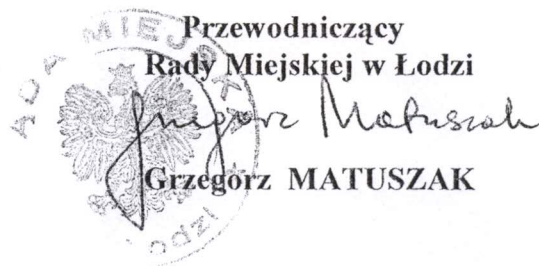 Przewodniczący
Rady Miejskiej w Łodzi
Grzegorz Matuszak
Grzegorz MATUSZAK
RADA MIEJSKA